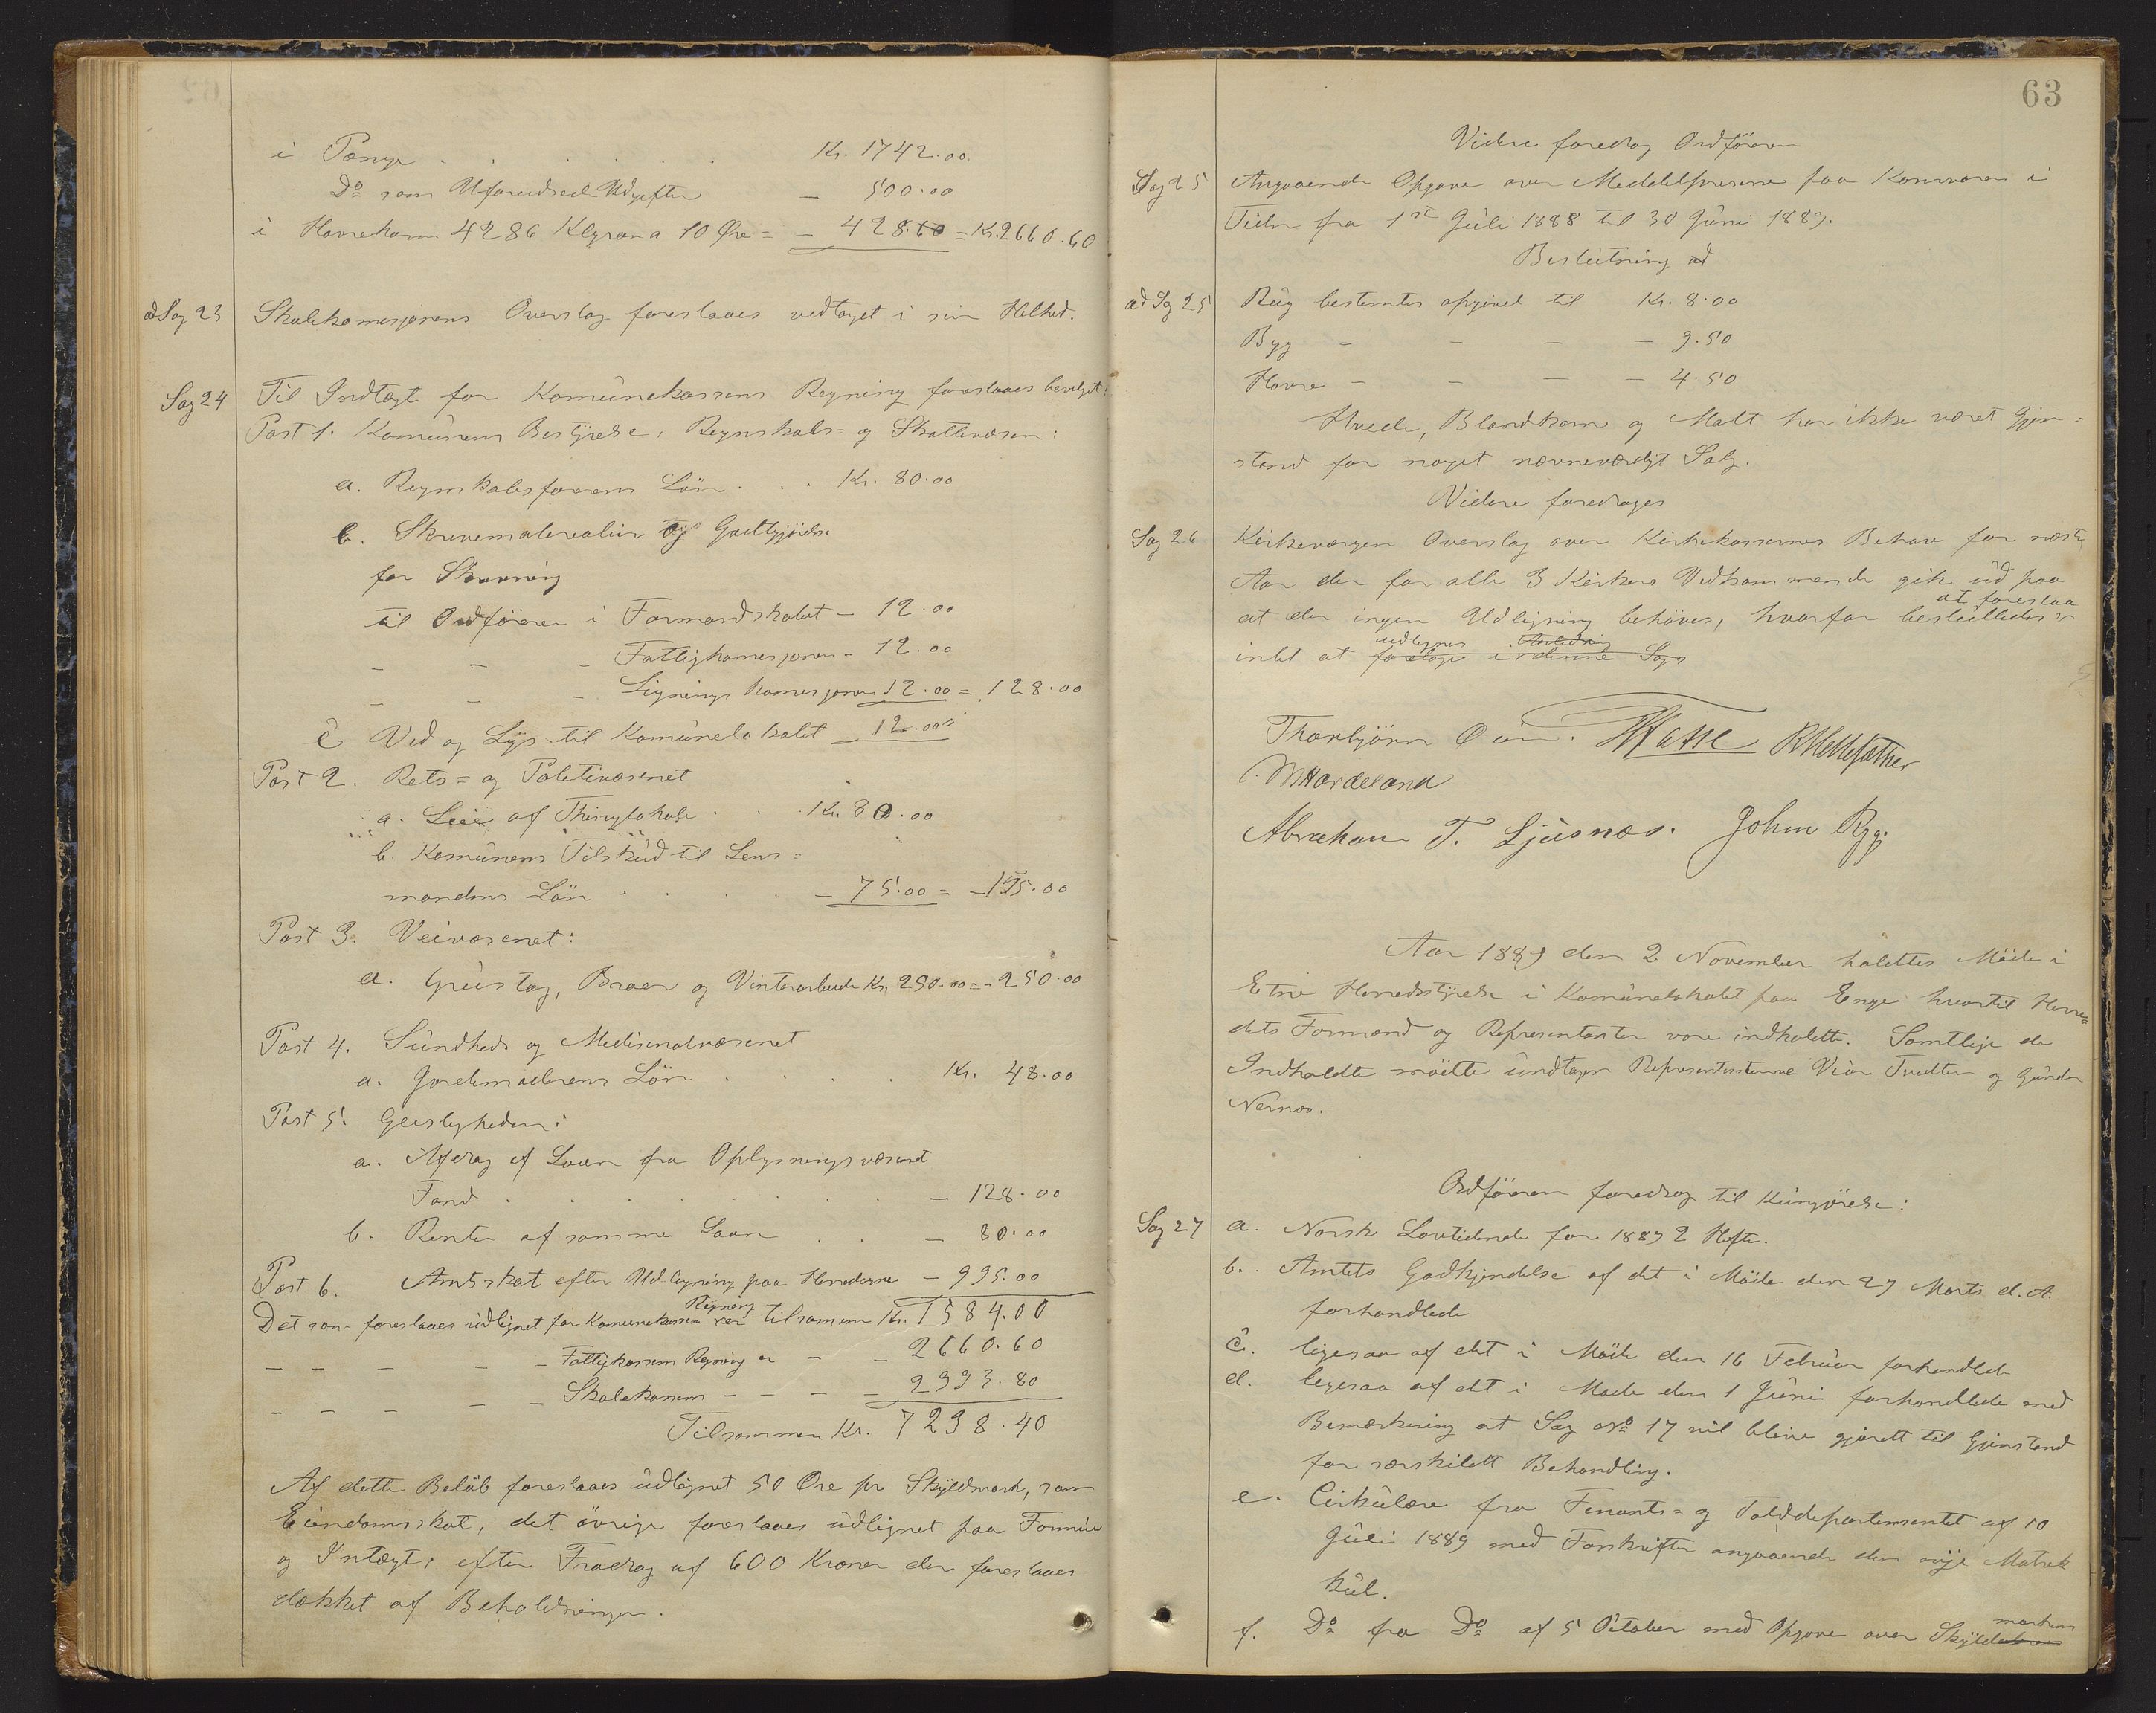 i Penge . . . . . . Kr. 1742.00
Do som Uforudseede Udgifter — 500.00
i Havrekorn 4286 Klgram a 10 Øre = — 428.60 = Kr. 2660.60
ad Sag 23 Skolekomisjonens Overslag foreslaaes vedtaget i sin Helhed.
Sag 24 Til Indtægt for Komünekassens Regning foreslaaes bevilget:
Post 1. Komünens Bestÿrelse, Regnskabs= og Skattevæsen:
a. Regnskabsførerens Lön . . . Kr. 80.00
b. Skrivematerialier og Godtgjörelse
for Skrivning
til Ordföreren i Formandskabet — 12.00
— — — Fattigkomisjonen — 12.00
— — — Lignings komisjonen 12.00 = 128.00
c Ved og Lÿs til Komünelokalet 12.00
Post 2. Rets= og Politivæsenet
a. Leie af Thinglokale . . Kr. 80.00
b. Komünens Tilsküd til Lens=
mandens Lön . . . . — 75.00 = — 155.00
Post 3. Veivæsenet:
a. Grüstag, Broer og Vinterarbeide Kr. 250.00 = - 250.00
Post 4. Sündheds og Medisinalvæsenet
a. Jordemoderens Lön . . . . Kr. 48.00
Post 5. Geistligheden:
a. Afdrag af Laan fra Oplysningsvæsenets
Fond . . . . . . . — 128.00
b. Renter af samme Laan . . — 80.00
Post 6. Amtsskat efter Udligning paa Herrederne — 995.00
Det som foreslaaes üdlignet for Komunekassens Regning er tilsammen Kr. 1584.00
— — — — — Fattigkassens Regning er — — 2660.60
— — — — — Skolekassens — — — — 2993.80
Tilsammen Kr. 7238.40
Af dette Belöb foreslaaes üdlignet 50 Øre pr Skÿldmark, som
Eiendomsskat, det övrige foreslaaes üdlignet paa Formüe
og Intægt, efter Fradrag af 600 Kroner der foreslaaes
dækket af Beholdningen.
63
Videre foredrog Ordföreren
Sag 25 Angaaende Opgave over Middelpriserne paa Kornvarer i
Tiden fra 1st Jüli 1888 til 30 Jüni 1889.
Beslutning
ad Sag 25 Rüg bestemtes opgivet til Kr. 8.00
Byg — — — — 9.50
Havre — — — — 4.50
Hvede, Blandkorn og Malt har ikke været Gjen=
stand for noget nævneværdigt Salg.
Videre foredroges
Sag 26 Kirkeværgens Overslag over Kirkekassernes Behov for næste
Aar der for alle 3 Kirkers Vedkommende gik üd paa
at der ingen Udligning behöves, hvorfor besluttedes at foreslaa
intet at udlignes foretage i denne Sag
Thorbjörn R Mehlsæther
M Hardeland
Abraham T. Ljüsnæs. John Rygg
Aar 1889 den 2 November holdtes Möde i
Etne Herredsstÿrelse i Komünelokalet paa Enge hvortil Herre=
dets Formænd og Representanter vare indkaldte. Samtlige de
Indkaldte mödte ündtagen Representanterne Tvedten og Gunder
Nernæs.
Ordföreren foredrog til Küngjörelse:
Sag 27 a. Norsk Lovtidende for 1889 2 Hefter.
b. Amtets Godkjendelse af det i Möde den 27 Marts d.A.
forhandlede
c. ligesaa af det i Möde den 16 Februar forhandlede
d. ligesaa af det i Møde den 1 Jüni forhandlede med
Bemærkning at Sag No 17 vil blive gjordt til Gjenstand
for særskildt Behandling.
e. Cirkülære fra Finants= og Tolddepartementet af 10
Jüli 1889 med Forskrifter angaaende den nÿe Matrik
kül.
f. Do fra Do af 5 October med Opgave over Skÿldmarken